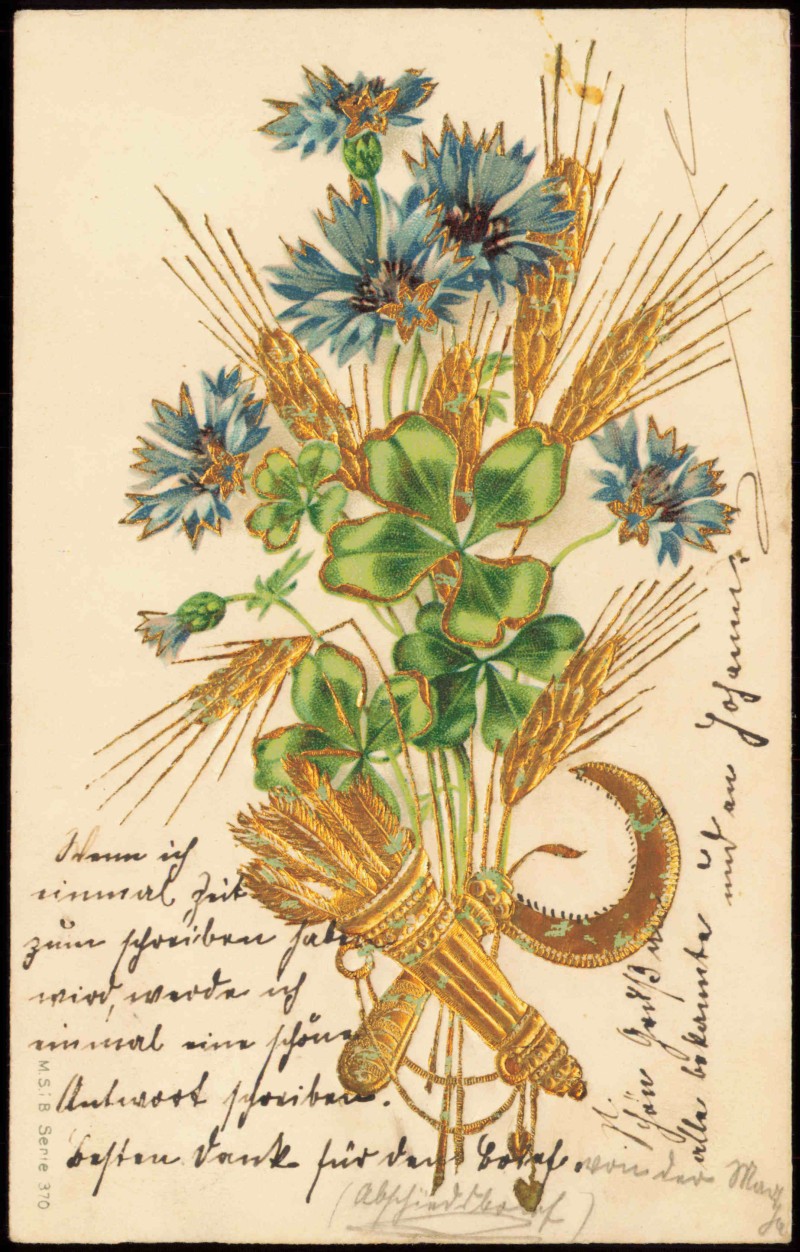 Wenn ich
einmal Zeit
zum schreiben haben
wird, werde ich
einmal eine schöne
Antwort schreiben.
Besten Dank für den Brief. von der
(Abschiedsbrief)
Schön Gruß
alle bekannte und an Johann
M.S.i.B Serie 370